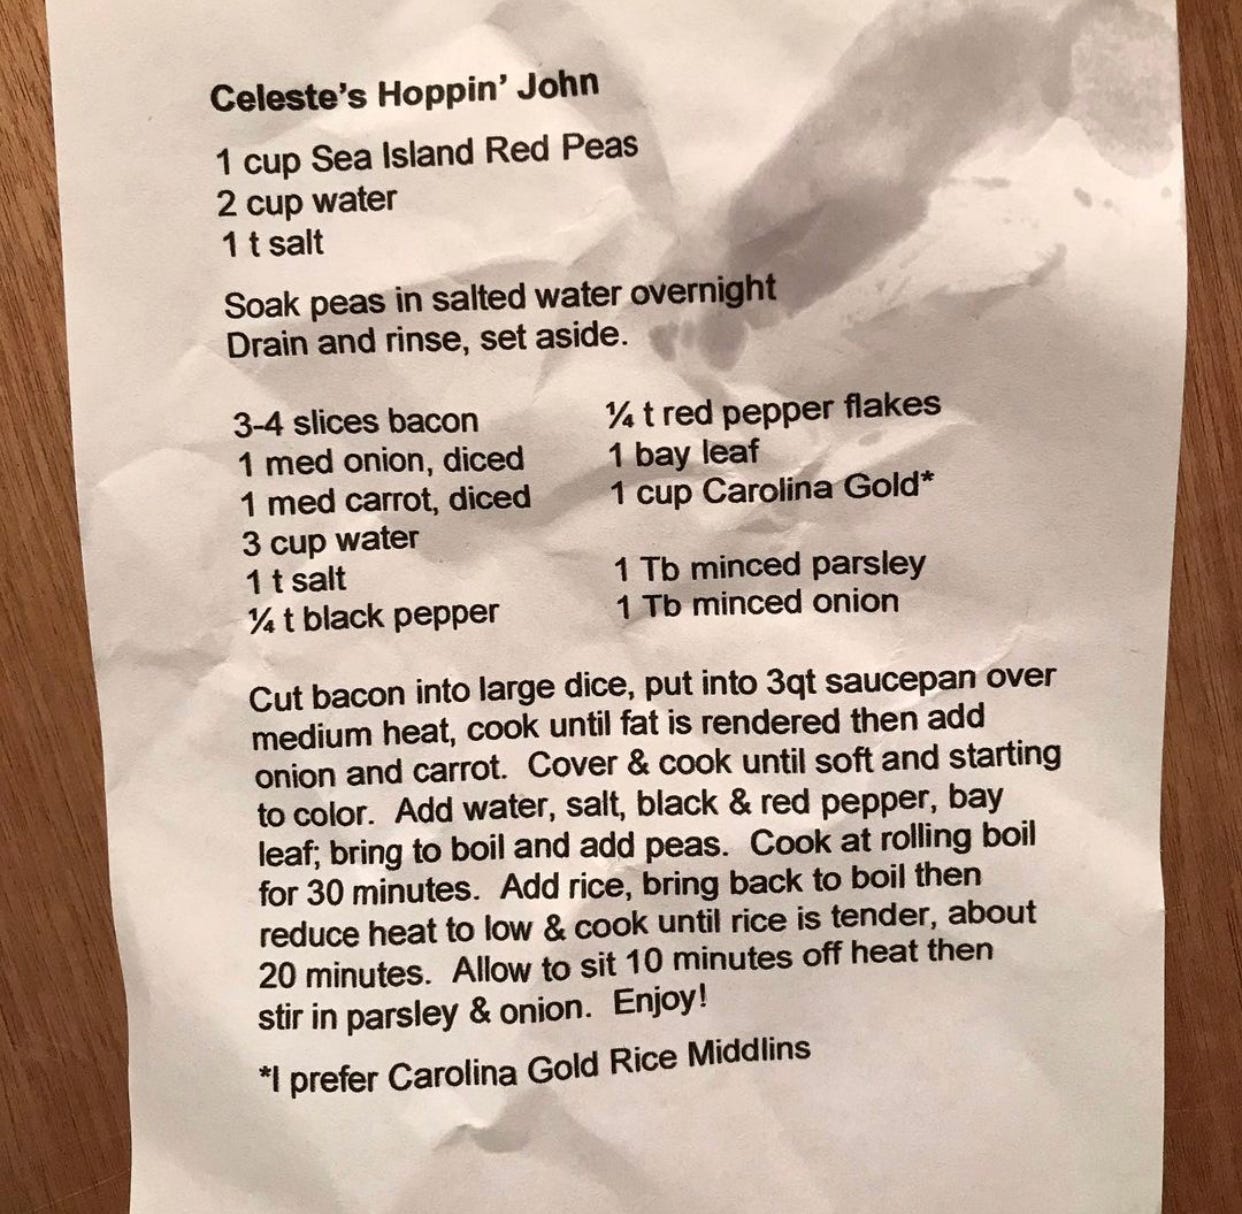 Celeste's Hoppin' John
1 cup Sea Island Red Peas
2 cup water
1 t salt
Soak peas in salted water overnight
Drain and rinse, set aside.
3-4 slices bacon
1 med onion, diced
1 med carrot, diced
3 cup water
1 t salt
¼ t black pepper
¼ t red pepper flakes
1 bay leaf
1 cup Carolina Gold*
1 Tb minced parsley
1 Tb minced onion
Cut bacon into large dice, put into 3qt saucepan over
medium heat, cook until fat is rendered then add
onion and carrot.  Cover & cook until soft and starting
to color.  Add water, salt, black & red pepper, bay
leaf; bring to boil and add peas.  Cook at rolling boil
for 30 minutes.  Add rice, bring back to boil then
reduce heat to low & cook until rice is tender, about
20 minutes.  Allow to sit 10 minutes off heat then
stir in parsley & onion.  Enjoy!
*I prefer Carolina Gold Rice Middlins